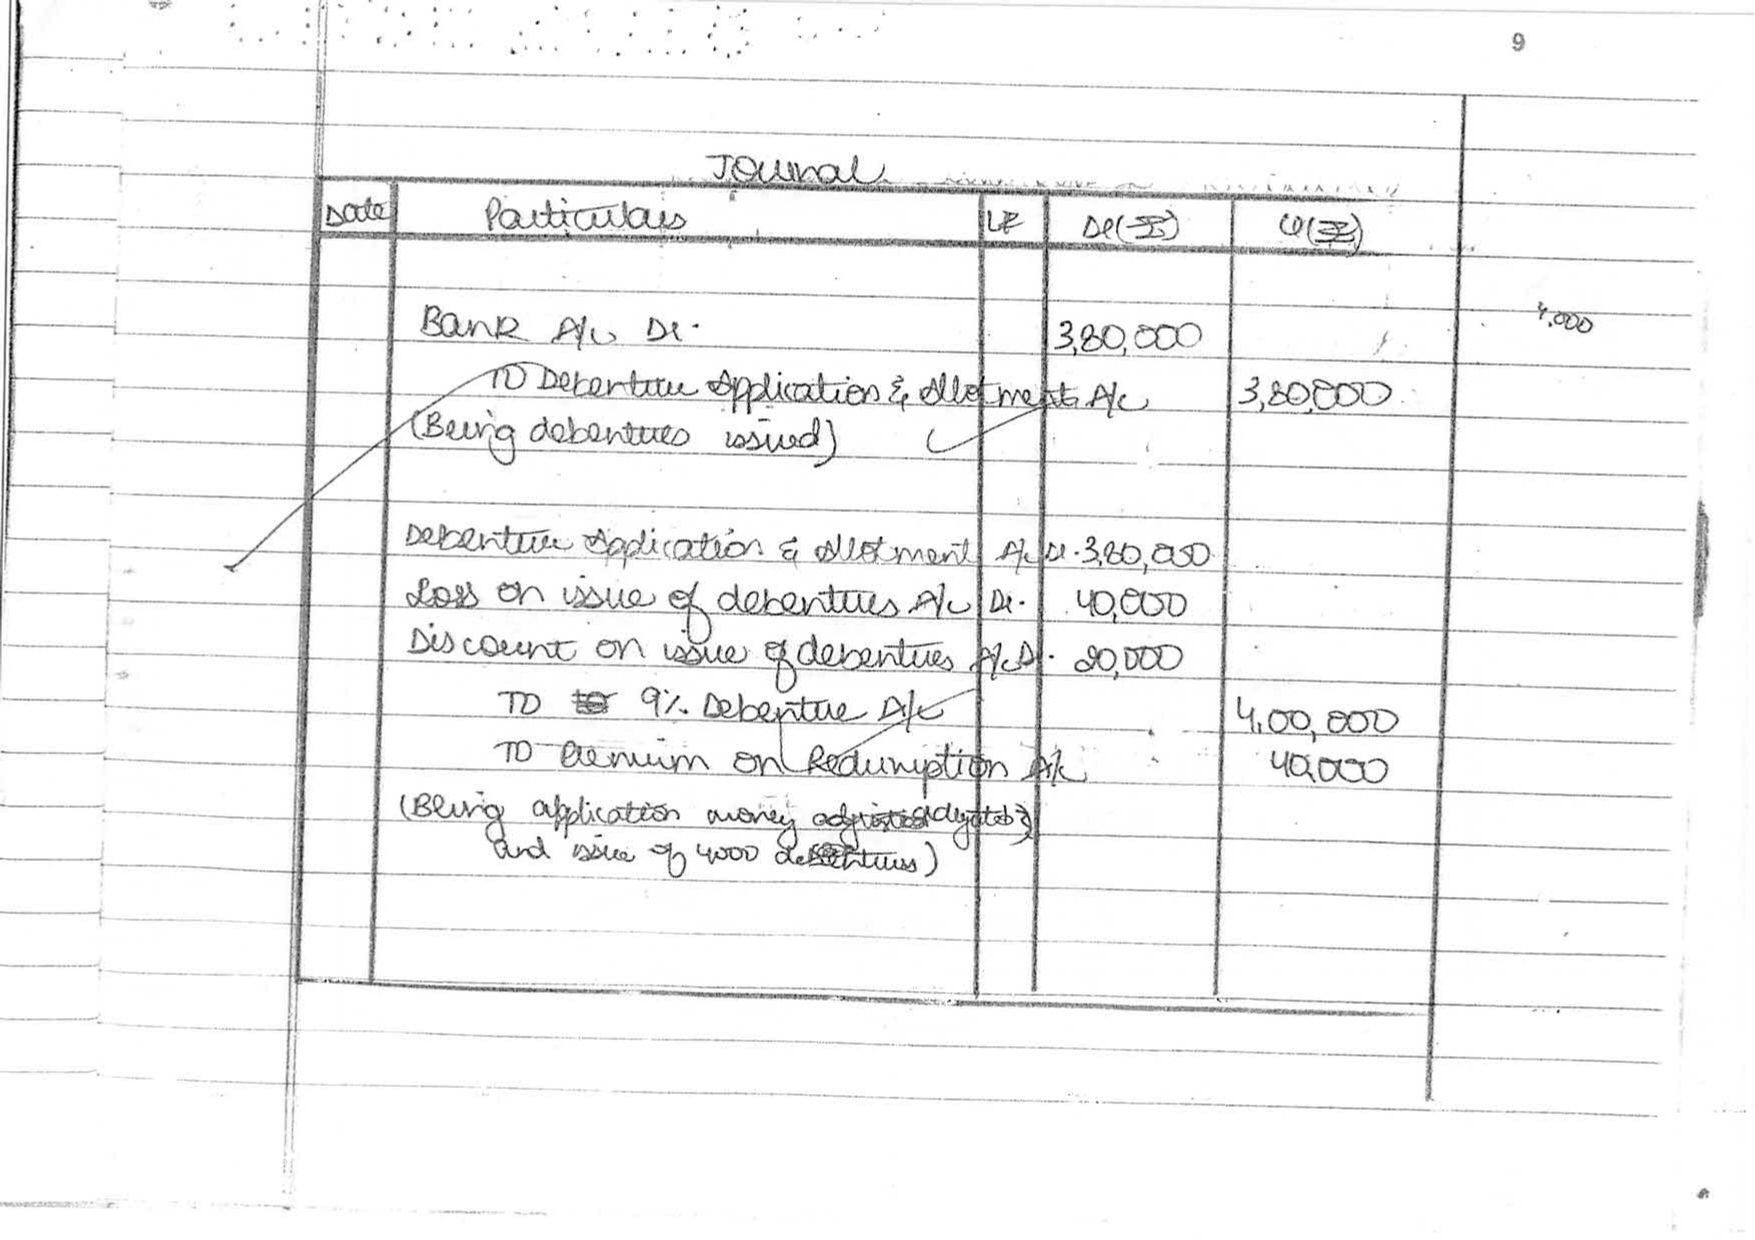 9
Journal
Date Particulars LF Dr(₹) Cr(₹)
4,000
Bank A/c Dr. 3,80,000
To Debenture Application & Allotment A/c 3,80,000
(Being debentures issued)
Debenture Application & Allotment A/c Dr. 3,80,000
Loss on issue of debentures A/c Dr. 40,000
Discount on issue of debentures A/c Dr. 20,000
To 9% Debenture A/c 4,00,000
To Premium on Redumption A/c 40,000
(Being application money
and issue of 4000 debentures)